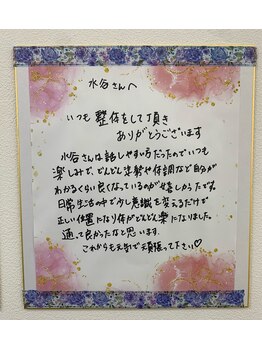 水谷さんへ
いつも整体をして頂き
ありがとうございます
水谷さんは話しやすい方だったのでいつも
楽しみで、どんどん姿勢や体調など自分が
わかるくらい良くなっているのが嬉しかったです。
日常生活の中で少し意識を変えるだけで
正しい位置になり体がどんどん楽になりました。
通って良かったなと思います。
これからも元気で頑張って下さい♡